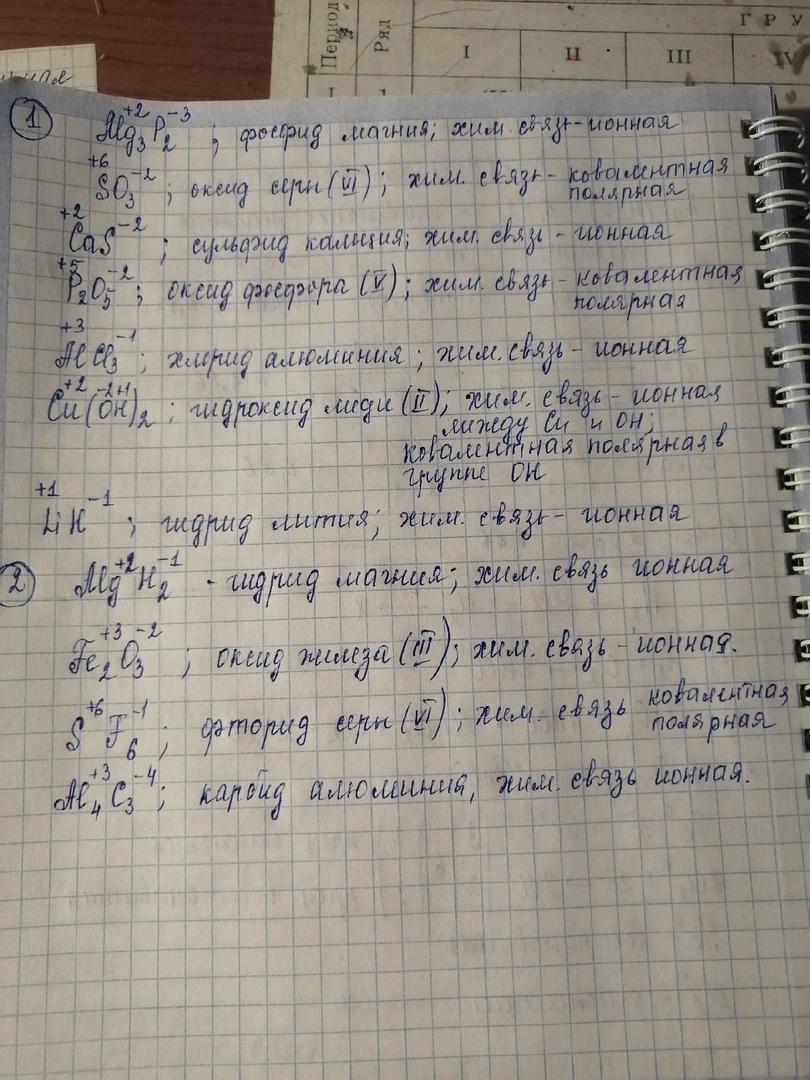 Период
Ряд
Г Р У
I
II
III
IV
I
1
+2 -3
① Mg₃P₂ ; фосфид магния; хим. связь-ионная
+6 -2
SO₃ ; оксид серы (VI); хим. связь- ковалентная
полярная
+2 -2
CaS ; сульфид кальция; хим. связь - ионная
+5 -2
P₂O₅ ; оксид фосфора (V); хим. связь- ковалентная
полярная
+3 -1
AlCl₃ ; хлорид алюминия ; хим. связь - ионная
+2 -2+1
Cu(OH)₂ ; гидроксид меди (II); хим. связь - ионная
между Cu и OH;
ковалентная полярная в
группе OH
+1 -1
LiH ; гидрид лития; хим. связь- ионная
+2 -1
② MgH₂ - гидрид магния; хим. связь ионная
+3 -2
Fe₂O₃ ; оксид железа (III); хим. связь - ионная.
+6 -1
SF₆ ; фторид серы (VI); хим. связь ковалентная
полярная
+3 -4
Al₄C₃ ; карбид алюминия, хим. связь ионная.